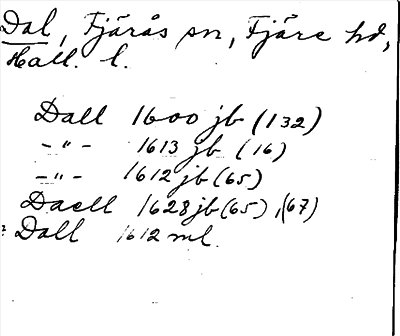 Dal, Fjärås sn, Fjäre hd,
Hall. l.
Dall 1600 jb (132)
-"- 1613 jb (16)
-"- 1612 jb (65)
Daell 1628 jb (65), (67)
? Dall 1612 ml.